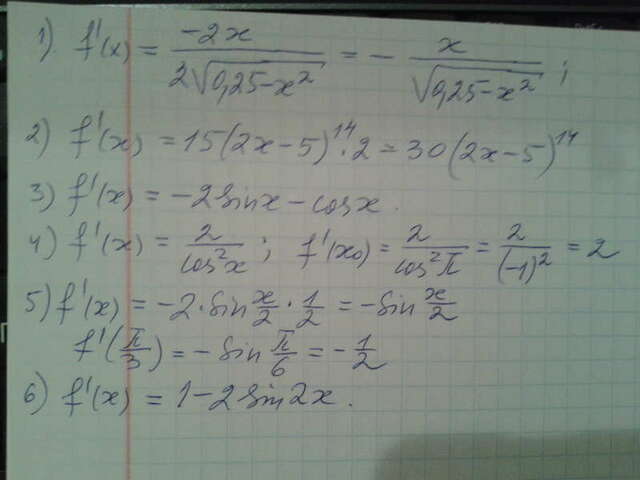 1). f'(x) = -2x / 2√(0,25-x²) = - x / √(0,25-x²) ;
2) f'(x) = 15(2x-5)¹⁴·2 = 30(2x-5)¹⁴
3) f'(x) = -2sinx - cosx.
4) f'(x) = 2 / cos²x ; f'(x₀) = 2 / cos²π = 2 / (-1)² = 2
5) f'(x) = -2·sin x/2 · 1/2 = -sin x/2
f'(π/3) = -sin π/6 = -1/2
6) f'(x) = 1-2sin2x.